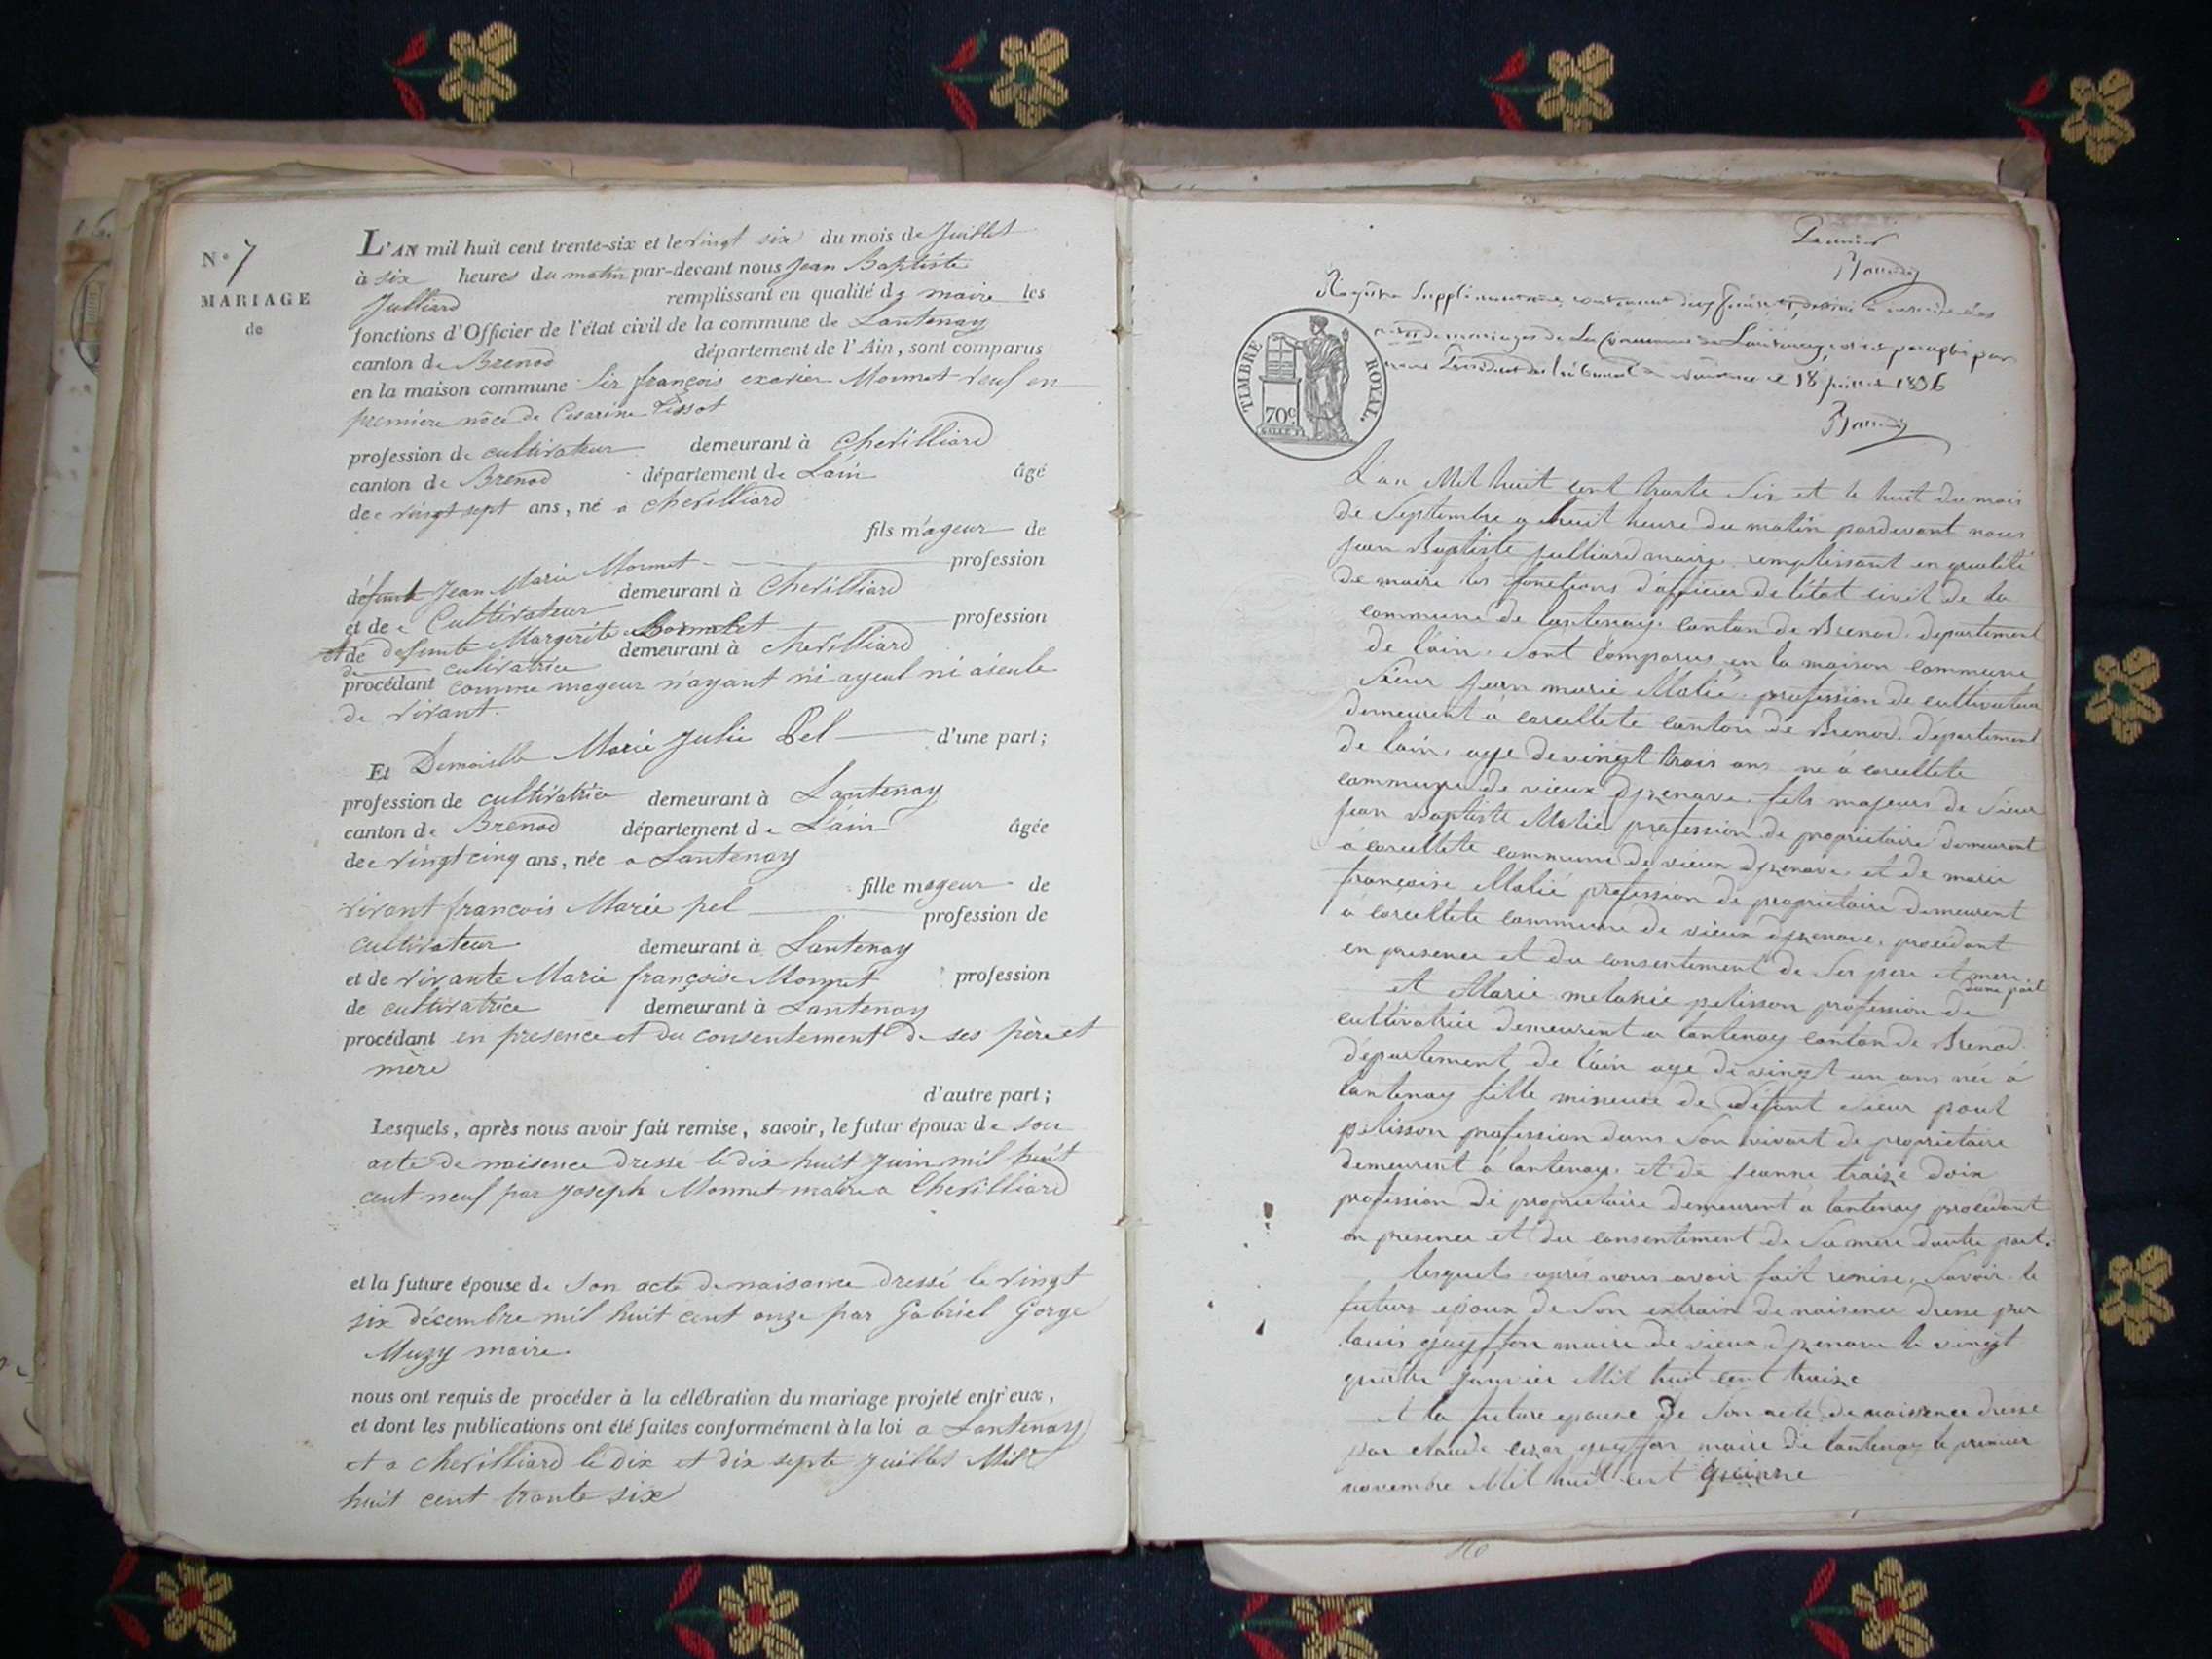 N° 7
MARIAGE
de
L'AN mil huit cent trente-six et le vingt six du mois de Juillet
à six heures du matin par-devant nous Jean Baptiste
Julliard remplissant en qualité de maire les
fonctions d'Officier de l'état civil de la commune de Lantenay
canton de Brenod département de l'Ain, sont comparus
en la maison commune Sir françois exavier Monnet veuf en
première nôce de Cesarine Tissot
profession de cultivateur demeurant à Chevilliard
canton de Brenod département de L'ain âgé
de vingt sept ans, né a chevilliard
fils mageur de
défunt Jean Marie Monnet profession
de Cultivateur demeurant à Chevilliard
et de defunte Margerite profession
de cultivatrice demeurant à chevilliard
procédant comme mageur n'ayant ni ayeul ni aieule
de vivant.
d'une part;
Et Demoiselle Marie Julie Pel
profession de cultivatrice demeurant à Lantenay
canton de Brenod département de L'ain âgée
de vingt cinq ans, née a Lantenay
fille mageur de
vivant francois Marie pel profession de
cultivateur demeurant à Lantenay
et de vivante Marie françoise Monnet profession
de cultivatrice demeurant à Lantenay
procédant en presence et du consentement de ses père et
mère
d'autre part;
Lesquels, après nous avoir fait remise, savoir, le futur époux de son
acte de naisence dressé le dix huit Juin mil huit
cent neuf par Joseph Monnet maire a Chevilliard
et la future épouse de son acte de naisance dressé le vingt
six décembre mil huit cent onze par Gabriel Gorge
Muzy maire.
nous ont requis de procéder à la célébration du mariage projeté entr'eux,
et dont les publications ont été faites conformément à la loi a Lantenay
et a chevilliard le dix et dix septe Juillet Mil
huit cent trante six
Premier
Registre Supplémentaire contenant deux
de mariages de La Commune de Lantenay paraphé par
nous Président du tribunal 18 juillet 1836
TIMBRE ROYAL.
70c
L'an Mil huit cent trante Six et le huit du mois
de Septembre a huit heure du matin pardevant nous
Jean Baptiste Julliard maire remplissant en qualité
de maire les fonctions d'officier de l'état civil de la
commune de lantenay. canton de Brenod. departement
de l'ain. Sont comparus en la maison commune
Sieur Jean marie Malié profession de cultivateur
demeurent a corcellete canton de Brenod. département
de lain. age de vingt trois ans né a corcellete
commune de vieux dizenave. fils majeurs de Sieur
Jean Baptiste Malié profession de proprietaire demeurent
a corcellete commune de vieux dizenave. et de marie
françoise Malié profession de proprietaire demeurent
a corcellete commune de vieux dizenave. procedant
en presence et du consentement de Ses pere et mere.
d'une part
et Marie melanie pelisson profession de
cultivatrice demeurent a lantenay canton de Brenod.
département de l'ain age de vingt un ans née a
lantenay fille mineure de défunt Sieur paul
pelisson profession dans Son vivant de proprietaire
demeurent a lantenay. et de Jeanne traize doix
profession de proprietaire demeurent a lantenay procédant
en presence et du consentement de Sa mere dautre part.
lesquels après nous avoir fait remise. Savoir. le
futur epoux de Son extrait de naisence dresse par
louis guyffon maire de vieux dizenave le vingt
quatre Janvier Mil huit cent traize
et la future epouse de Son acte de naissence dresse
par claude cezar guyffon maire de lantenay le premier
novembre Mil huit cent quinze